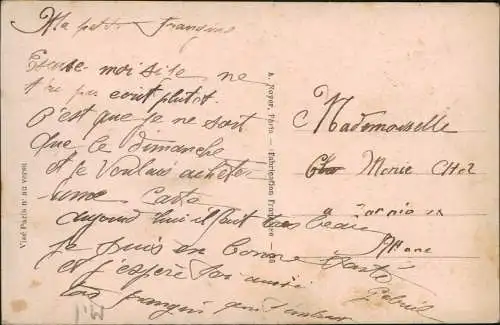 Ma petite Frangine
Excuse-moi si je ne
t'ai pas ecrit plutot.
C'est que je ne sort
que le dimanche
et je voulais acheter
une Carte
aujourd'hui il fait tres beau
je suis en bonne Santé
et j'espère toi aussi
ton frangin qui t'embrasse
Gabriel
Mademoiselle
Marie
A. Noyer, Paris — Fabrication Française
Visé Paris n° au verso